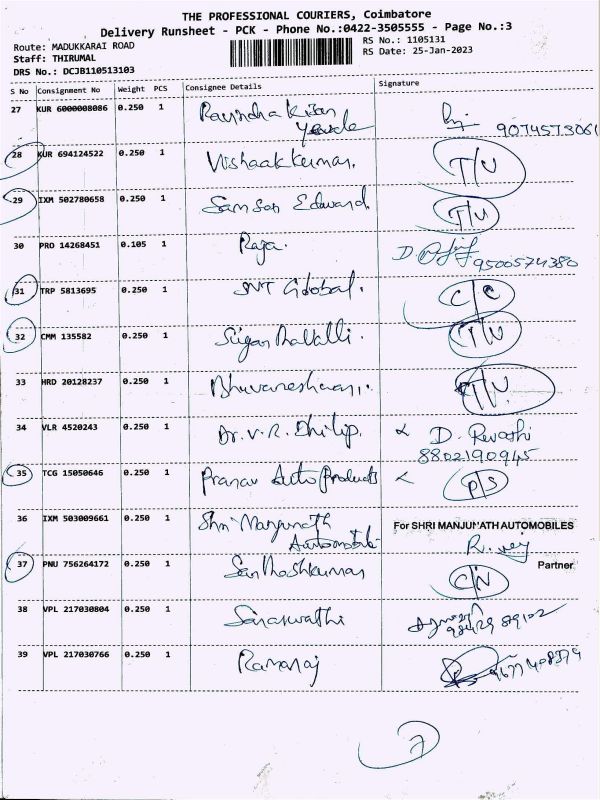 THE PROFESSIONAL COURIERS, Coimbatore
Delivery Runsheet - PCK - Phone No.:0422-3505555 - Page No.:3
Route: MADUKKARAI ROAD
RS No.: 1105131
Staff: THIRUMAL
RS Date: 25-Jan-2023
DRS No.: DCJB110513103
S No Consignment No Weight PCS Consignee Details Signature
27 KUR 6000008086 0.250 1 Ravindra Kiran
9074573061
28 KUR 694124522 0.250 1 Vishaakkumar. T/U
29 IXM 502780658 0.250 1 Samson Edward T/U
30 PRO 14268451 0.105 1 Raja. D.
9500574380
31 TRP 5813695 0.250 1 SNT Global. C/C
32 CMM 135582 0.250 1 T/U
33 HRD 20128237 0.250 1 Bhuvaneshwari. T/U.
34 VLR 4520243 0.250 1 Dr. V. R. Philip. D. Revathi
8802190945
35 TCG 15050646 0.250 1 Pranav Auto Products P/S
36 IXM 503009661 0.250 1 Shri Manjunath For SHRI MANJUNATH AUTOMOBILES
Automobile
Partner
37 PNU 756264172 0.250 1 Santhoshkumar C/N
38 VPL 217030804 0.250 1 Saraswathi
39 VPL 217030766 0.250 1 Ramaraj
7